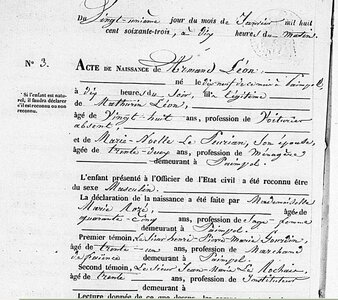 Du Vingt-unième jour du mois de Janvier mil huit
cent soixante-trois, à dix heures du Matin
N° 3.
ACTE DE NAISSANCE de Armand Léon,
né le dix neuf de ce mois à Paimpol,
à dix heures du Soir, fils légitime
de Mathurin Léon,
âgé de Vingt huit ans, profession de Voiturier
absent,
et de Marie-Noëlle Le Jeurian, Son épouse,
âgée de trente-deux ans, profession de Ménagère
demeurant à Paimpol.
Si l'enfant est naturel, il faudra déclarer s'il est reconnu ou non reconnu.
L'enfant présenté à l'Officier de l'Etat civil a été reconnu être
du sexe Masculin.
La déclaration de la naissance a été faite par Mademoiselle
Marie Rozé, âgée de
quarante-cinq ans, profession de Sage-femme
demeurant à Paimpol.
Premier témoin, Le Sieur henri Pierre Marie
âgé de trente-un ans, profession de Marchand
de faïence demeurant à Paimpol.
Second témoin, Le Sieur Jean-Marie Le Rochais,
âgé de trente ans, profession de Instituteur
demeurant à
Lecture donnée de ce que dessus,